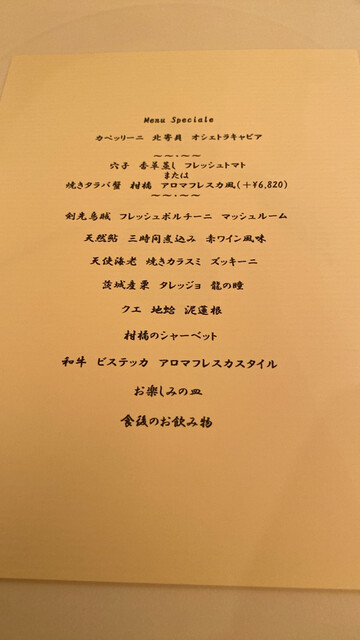 Menu Speciale
カペッリーニ 北寄貝 オシェトラキャビア
~~・~~
穴子 香草蒸し フレッシュトマト
または
焼きタラバ蟹 柑橘 アロマフレスカ風(+¥6,820)
~~・~~
剣先烏賊 フレッシュポルチーニ マッシュルーム
天然鮎 三時間煮込み 赤ワイン風味
天使海老 焼きカラスミ ズッキーニ
茨城産栗 タレッジョ 龍の瞳
クエ 地蛤 泥蓮根
柑橘のシャーベット
和牛 ビステッカ アロマフレスカスタイル
お楽しみの皿
食後のお飲み物